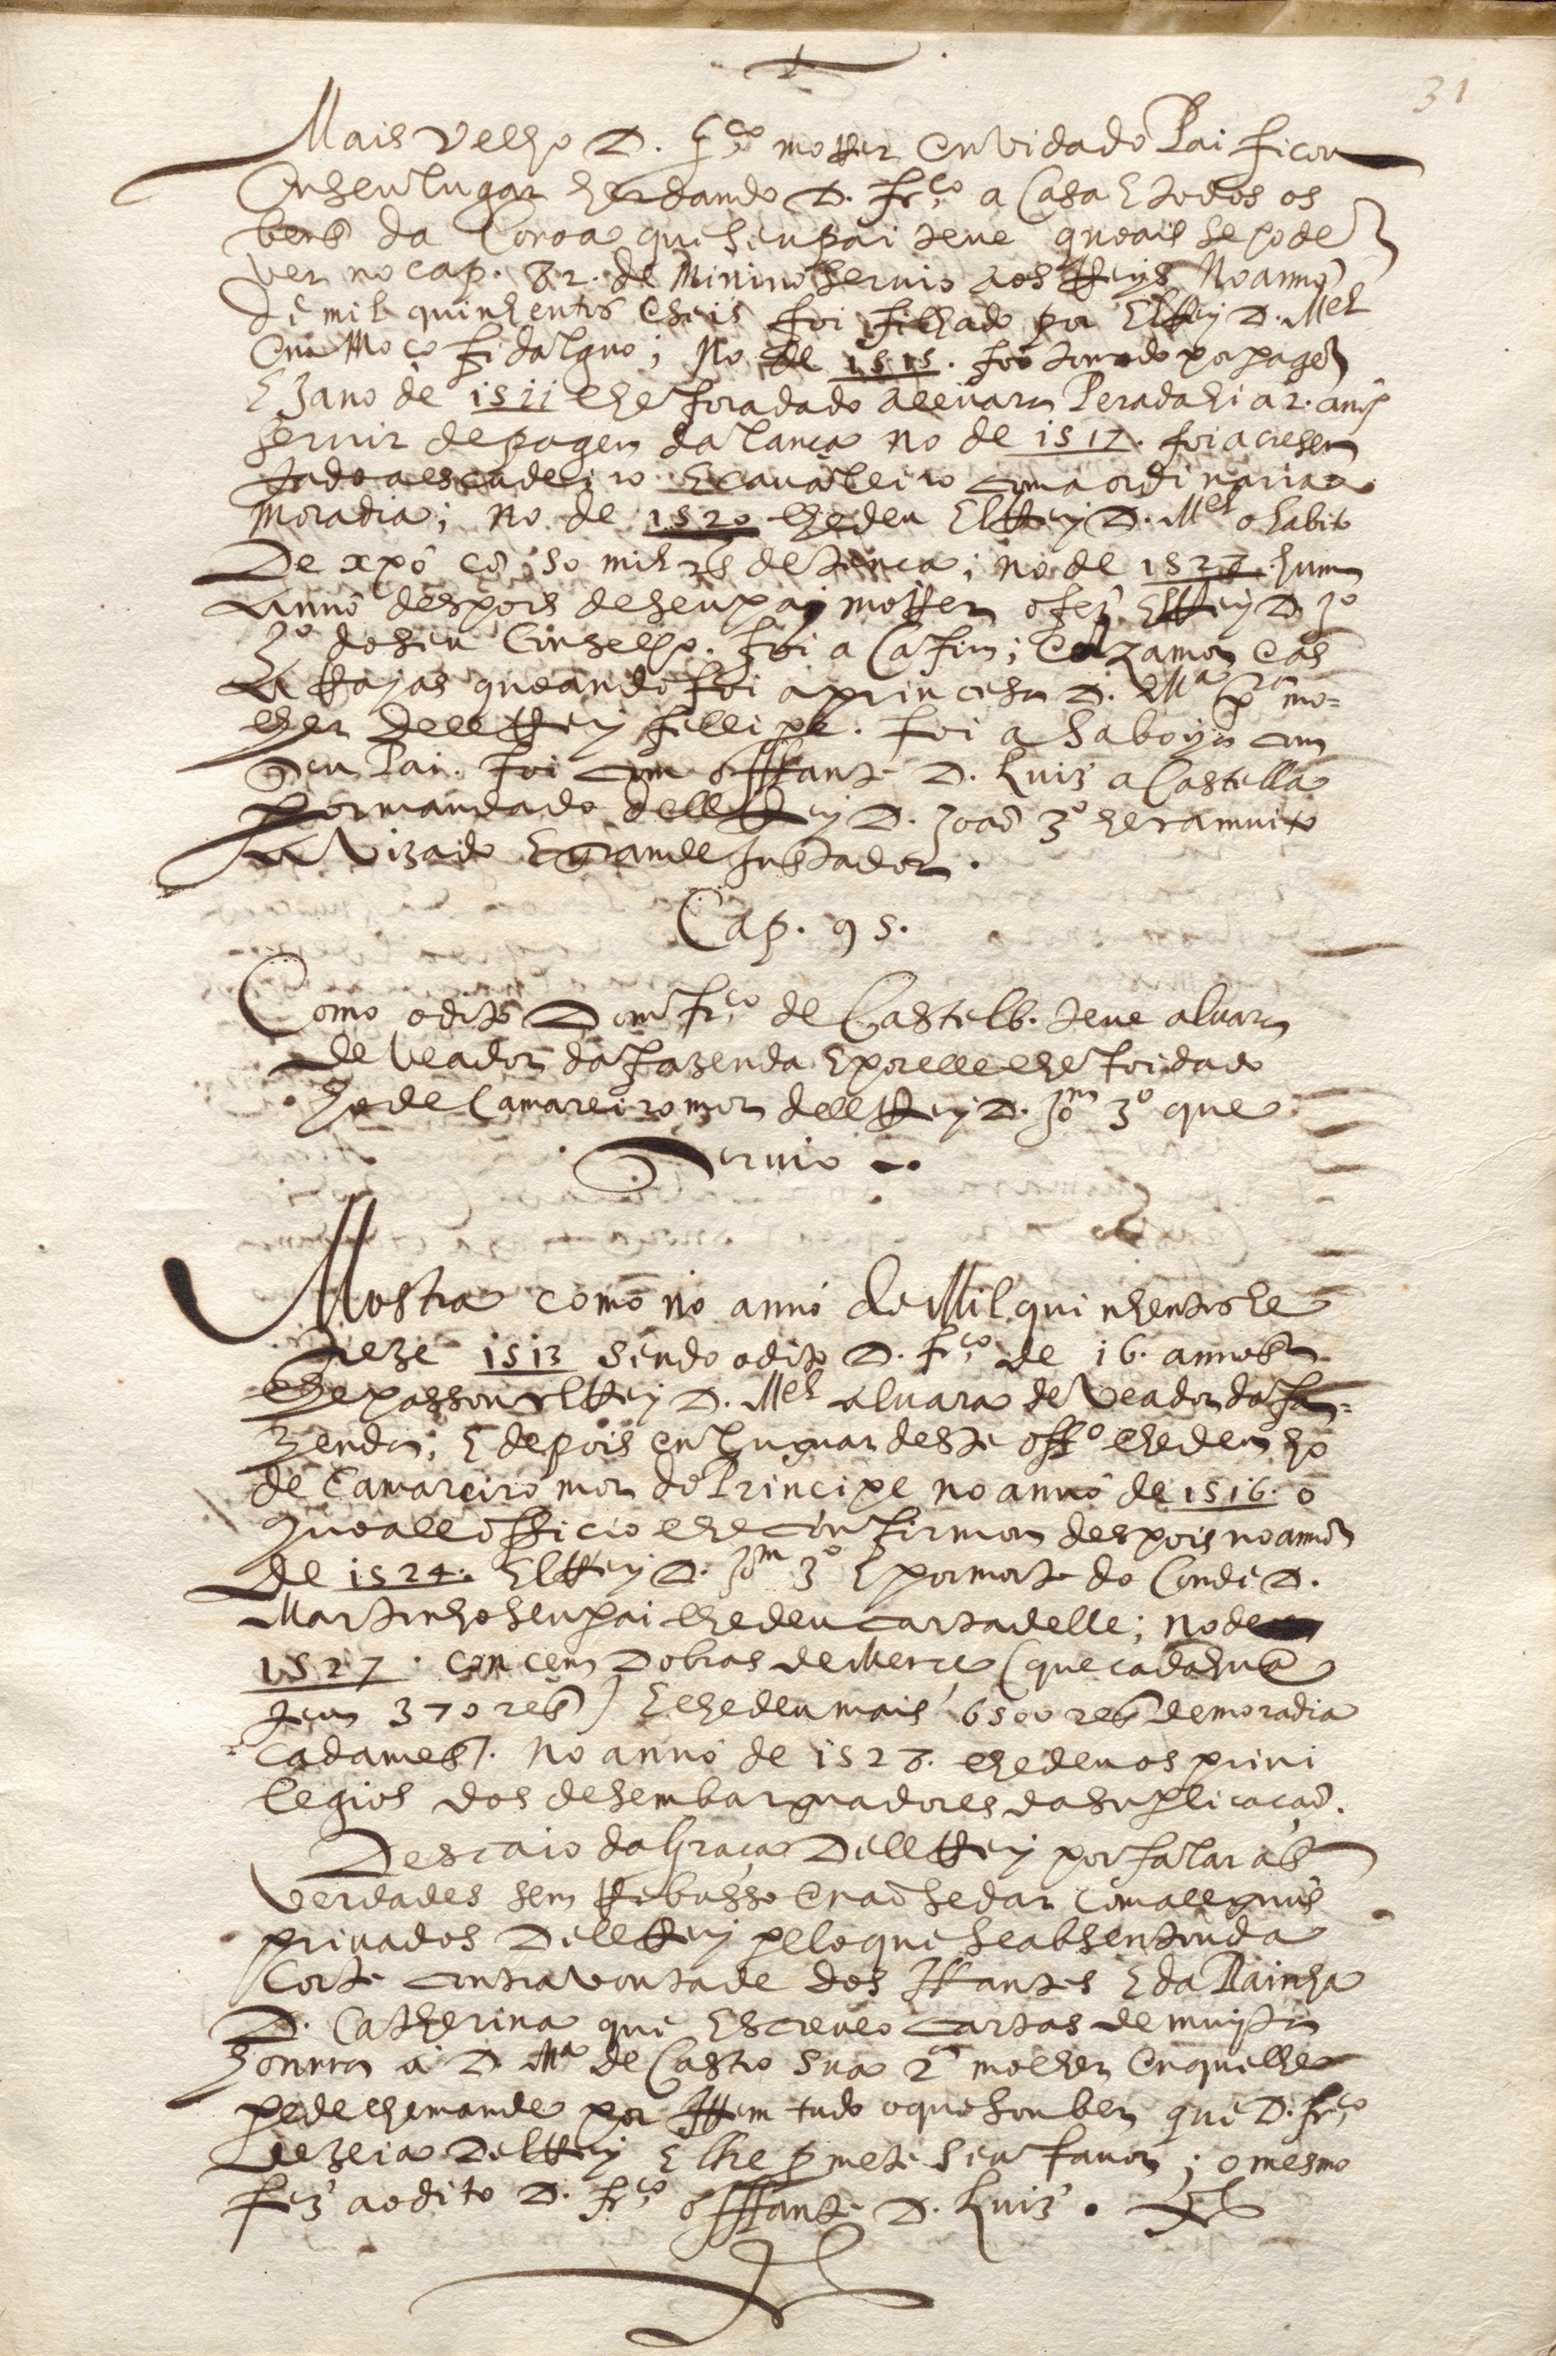 31
Mais velho D. fr.co morrer en vida do Pai ficou
en seu lugar herdando D. fr.co a Casa E todos os
bens da Coroa que seu pai teve quoais se pode
ver no cap. 82. de Minino servio aos Reys No anno
de mil quinhentos e seis foi filhado por ElRey D. Mel
em Moço fidalguo; No de 1515. foi tomado por pagem
E Ja no de 1511 lhe fora dado alvara Pera dahi a 2. annos
servir de pagem da lança no de 1517. foi a cresen
tado a escudeiro E cavaleiro com a ordinaria
moradia; no de 1520 lhe deu ElRey D. Mel o habito
De xpô cõ 50 mil rs de tença; no de 1527. hum
anno despois de seu pay morrer o fez ElRey D. Jo
3o do seu Conselho. foi a Cafim; e Azamor e as
a Rayas quoando foi a princesa D. Ma pra mo=
lher dell Rey fellipe. foi a Saboya com
seu Pai. foi com o Iffante D. Luiz a Castella
por mandado dell Rey D. Joaõ 3o hera muito
a vizado E grande Justador.
Cap. 95.
Como o dito Dom fr.co de Castelb. teve alvara
de veador da fazenda E por elle lhe foi dado
ho de Camareiro mor dell Rey D. Joam 3o que
servio
Mostra como no anno de Mil quinhentos he
treze 1513 sendo o dito D. fr.co de 16. annos
lhe passou ElRey D. Mel alvara de veador da fa=
zenda; E depois en luguar deste offo lhe deu ho
de Camareiro mor do Principe no anno de 1516. o
quoal officio lhe confirmou despois no anno
de 1524. ElRey D. Joam 3o E por morte do Conde D.
Martinho seu pai lhe deu carta delle; no de
1527. con cem Dobras de Merce (que cada hua
tem 370 reis) E lhe deu mais 6500 reis de moradia
cada mes. no anno de 1528. lhe deu os privi
legios dos desembarguadores da suplicaçaõ.
Descaio da Graça Dell Rey por falar as
verdades sem Rebusso e naõ se dar com alguns
privados Dell Rey pelo que se absentou da
Corte contra vontade dos Iffantes E da Rainha
D. Catherina que Escreveo cartas de muyta
honrra a D Ma de Castro sua 2a molher en que lhe
pede lhe mande por Item tudo o que souber que D. fr.co
dezeja Del Rey E lhe pmete seu favor; o mesmo
fez ao dito D. fr.co o Iffante D. Luiz.